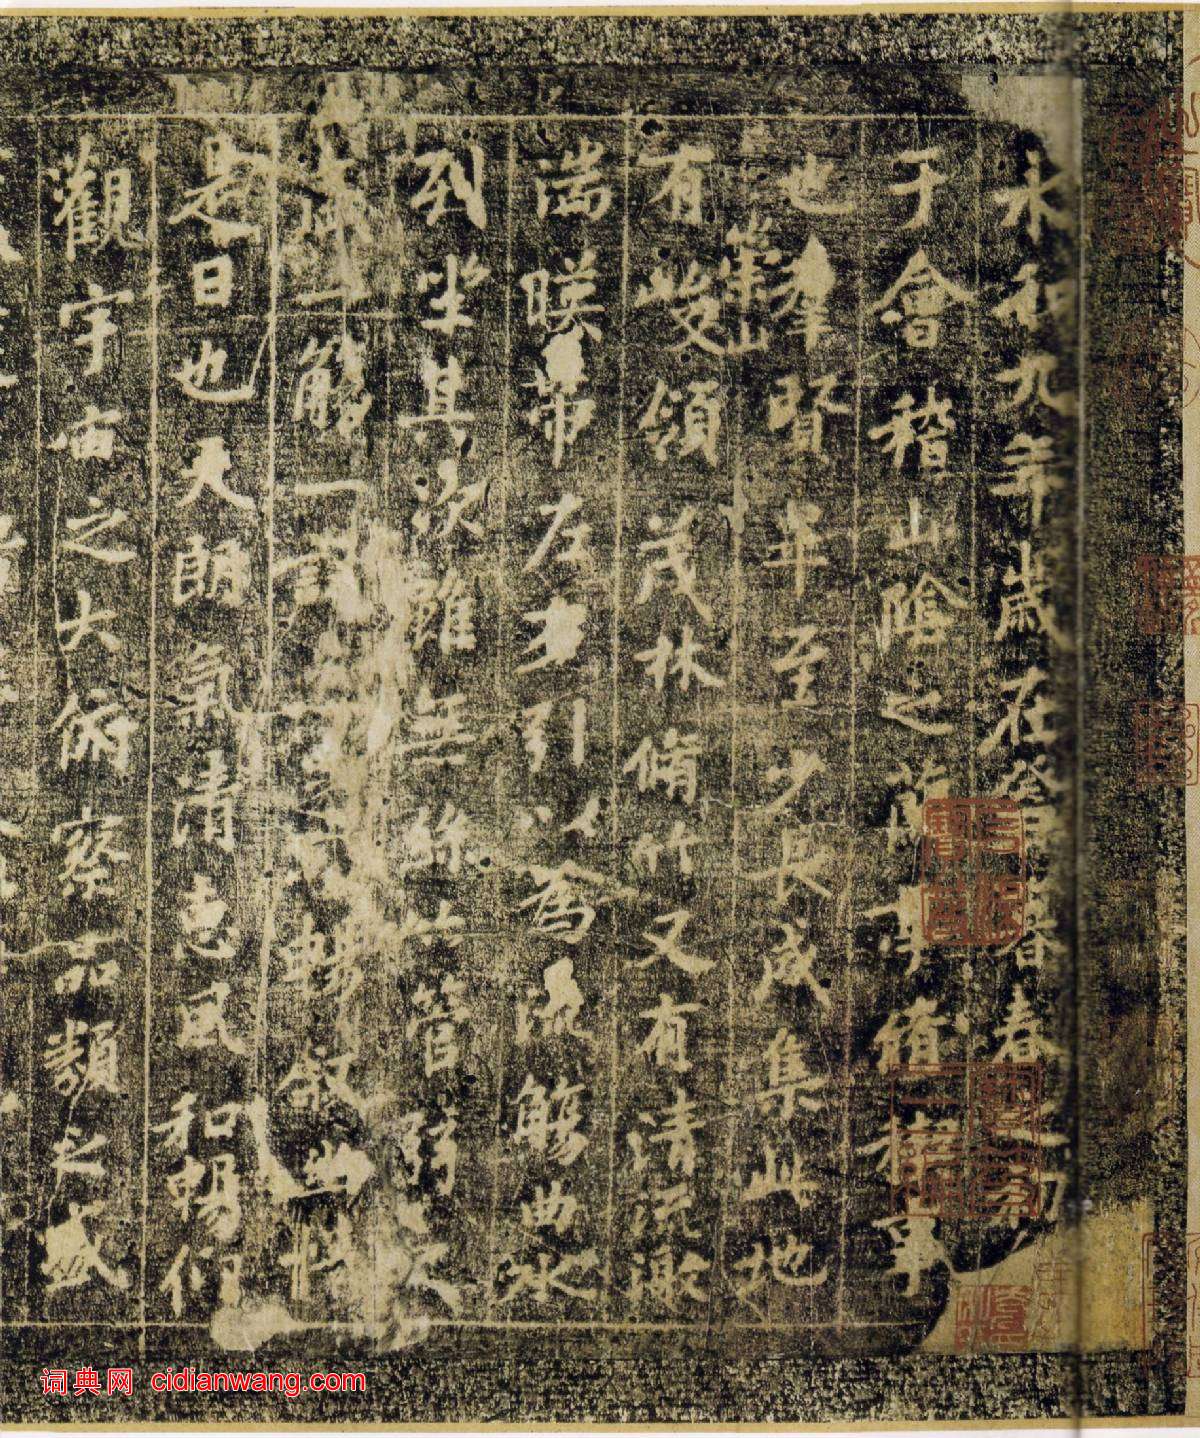 永和九年歲在癸丑暮春之初
于會稽山陰之蘭亭脩禊事
也羣賢畢至少長咸集此地
崇山
有峻領茂林脩竹又有清流激
湍暎帶左右引以為流觴曲水
列坐其次雖無絲竹管弦之
一觴一詠亦足以暢敘幽情
是日也天朗氣清惠風和暢仰
觀宇宙之大俯察品類之盛
词典网 cidianwang.com